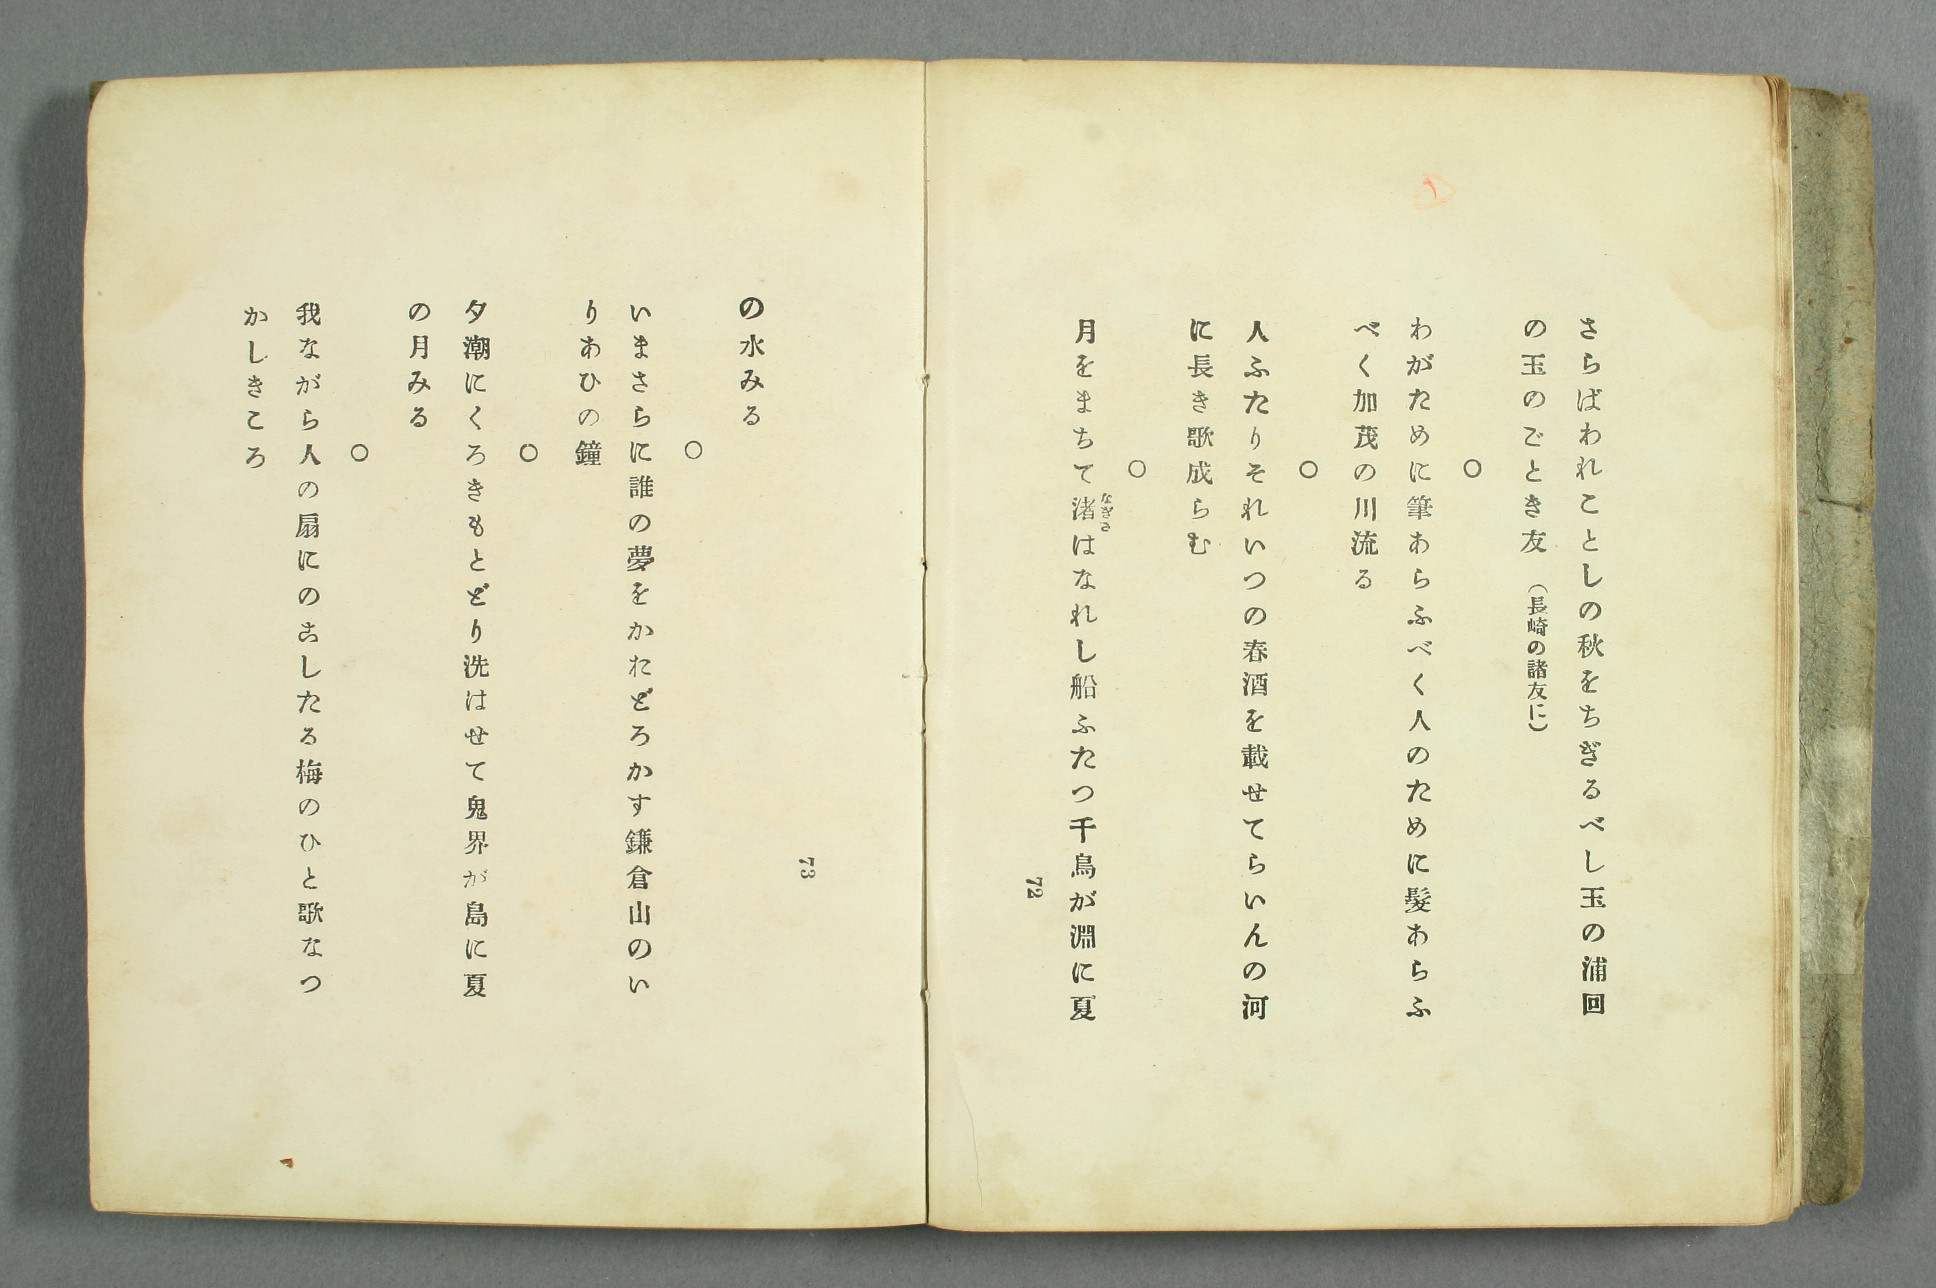 さらばわれことしの秋をちぎるべし玉の浦回
の玉のごとき友 (長崎の諸友に)
○
わがために筆あらふべく人のために髮あらふ
べく加茂の川流る
○
人ふたりそれいつの春酒を載せてらいんの河
に長き歌成らむ
○
月をまちて渚はなれし船ふたつ千鳥が淵に夏
なぎさ
72
の水みる
○
いまさらに誰の夢をかおどろかす鎌倉山のい
りあひの鐘
○
夕潮にくろきもとどり洗はせて鬼界が島に夏
の月みる
○
我ながら人の扇にのこしたる梅のひと歌なつ
かしきころ
73